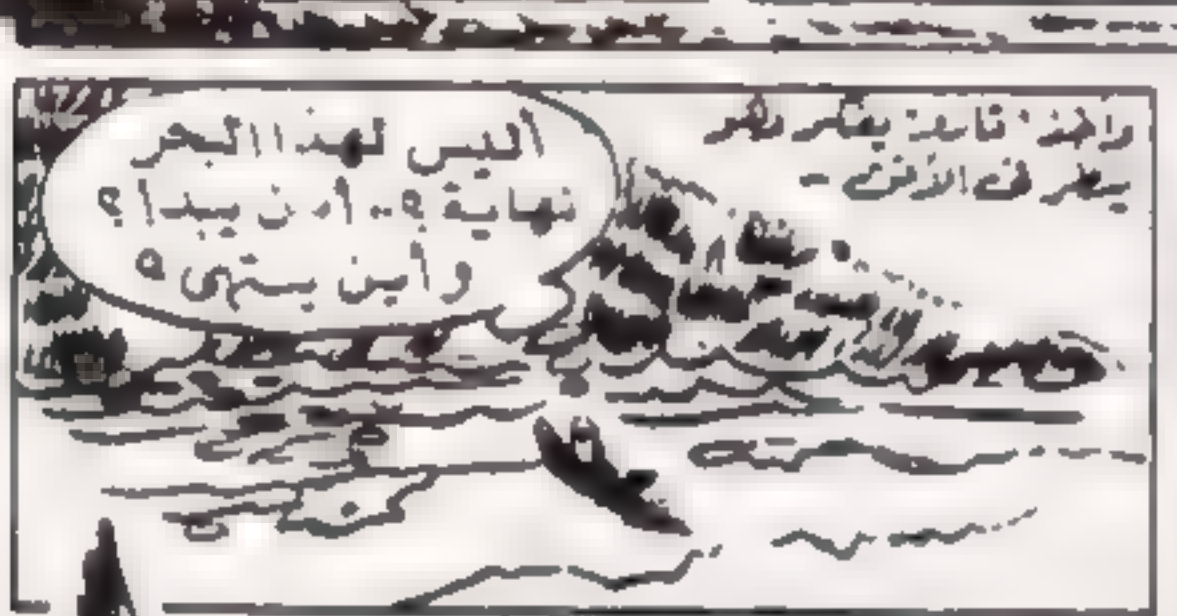 وأخذ يفكر وهو
ينظر في الأفق -
أليس لهذا البحر
نهاية ؟.. أين يبدأ ؟
وأين ينتهى ؟